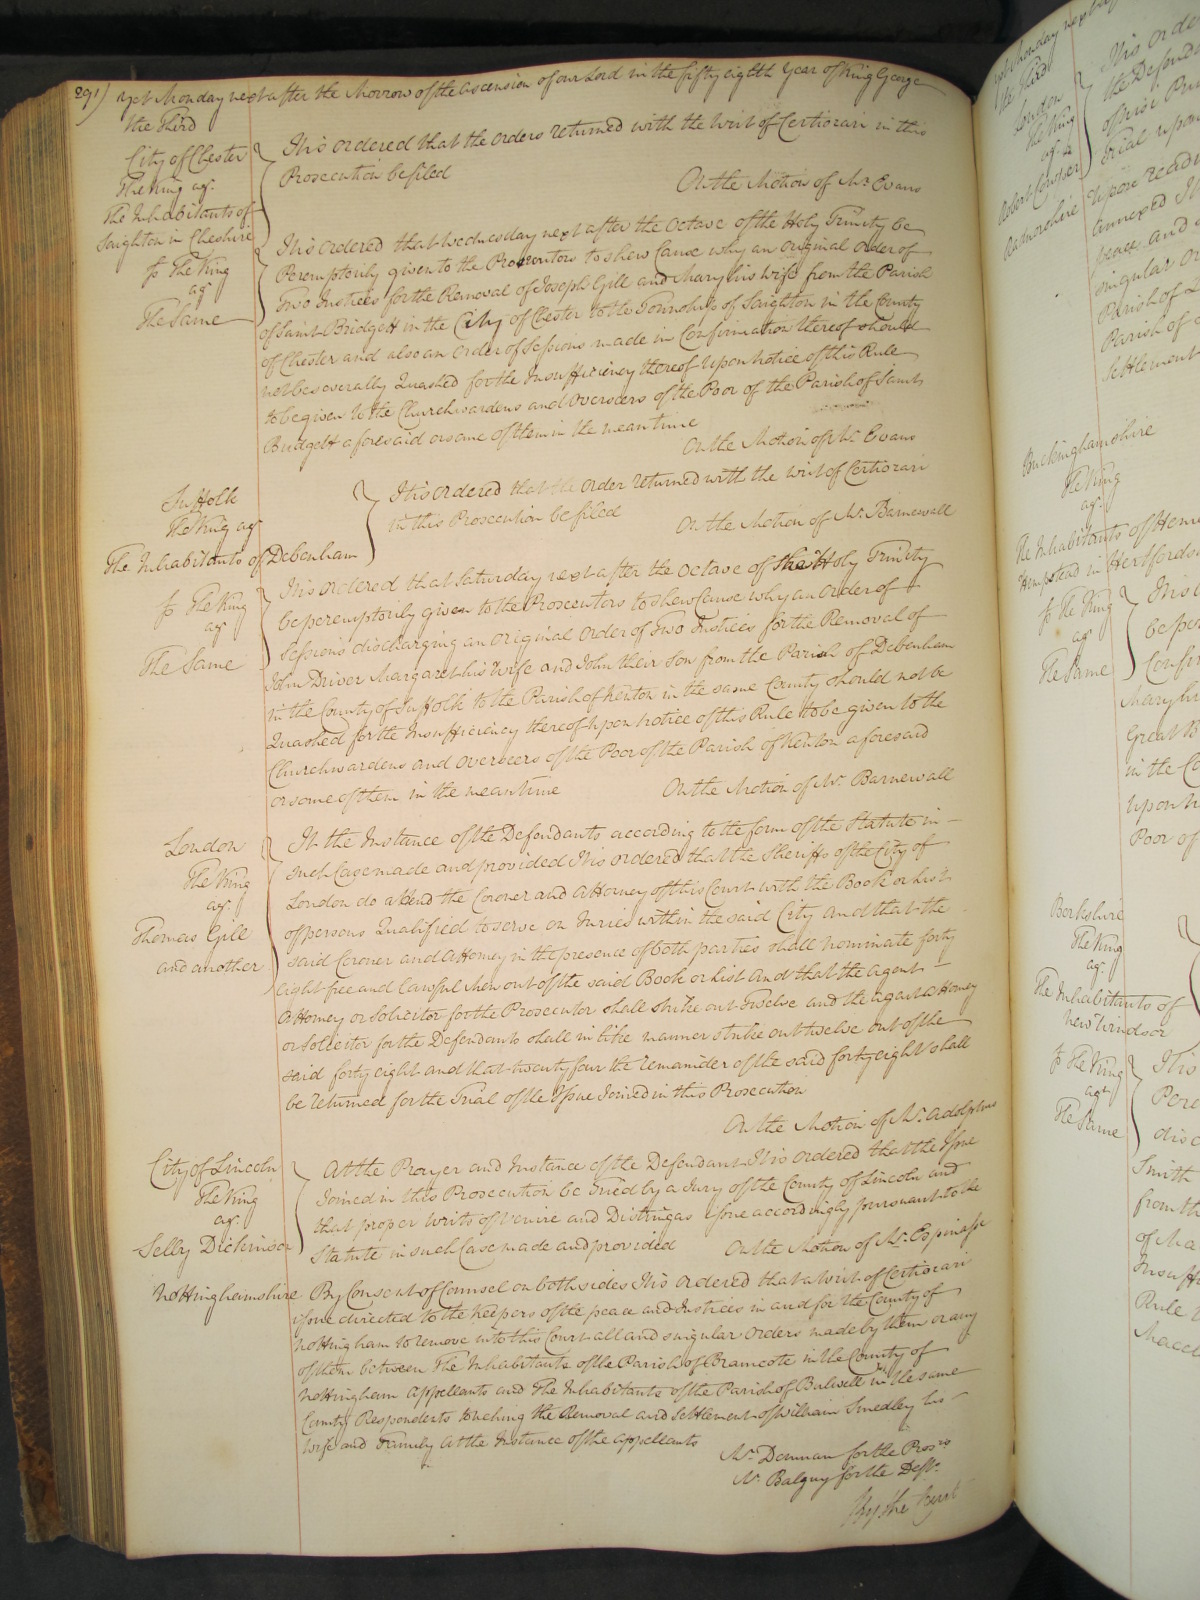 291) Yet Monday next after the Morrow of the Ascension of our Lord in the fifty eighth Year of King George
the Third
City of Chester
The King agt.
The Inhabitants of
Saighton in Cheshire
It is ordered that the orders returned with the Writ of Certiorari in this
Prosecution be filed
On the Motion of Mr. Evans
The King
agt.
The Same
It is ordered that Wednesday next after the Octave of the Holy Trinity be
Peremptorily given to the Prosecutors to shew Cause why an Original Order of
Two Justices for the Removal of Joseph Gill and Mary his wife from the Parish
of Saint Bridgett in the City of Chester to the Township of Saighton in the County
of Chester and also an Order of Sessions made in Confirmation thereof should
not be severally Quashed for the Insufficiency thereof Upon Notice of this Rule
to be given to the Churchwardens and Overseers of the Poor of the Parish of Saint
Bridgett aforesaid or some of them in the mean time
On the Motion of Mr. Evans
Suffolk
The King agt.
The Inhabitants of Debenham
It is ordered that the order returned with the Writ of Certiorari
in this Prosecution be filed
On the Motion of Mr. Barnewall
The King
agt.
The Same
It is ordered that Saturday next after the Octave of the Holy Trinity
be peremptorily given to the Prosecutors to shew Cause why an Order of
Sessions discharging an Original Order of Two Justices for the Removal of
John Driver Margaret his Wife and John their Son from the Parish of Debenham
in the County of Suffolk to the Parish of Kenton in the same County should not be
Quashed for the Insufficiency thereof Upon Notice of this Rule to be given to the
Churchwardens and Overseers of the Poor of the Parish of Kenton aforesaid
or some of them in the mean time
On the Motion of Mr. Barnewall
London
The King
agt.
Thomas Gill
and another
At the Instance of the Defendants according to the form of the Statute in
such Case made and provided It is ordered that the Sheriffs of the City of
London do attend the Coroner and Attorney of this Court with the Book or List
of persons Qualified to serve on Juries within the said City and that the
said Coroner and Attorney in the presence of both parties shall nominate forty
eight free and lawful Men out of the said Book or List And that the Agent
Attorney or Solicitor for the Prosecutor shall strike out Twelve and the Agent Attorney
or Solicitor for the Defendants shall in like manner strike out twelve out of the
said forty eight and that twenty four the remainder of the said forty eight shall
be returned for the Trial of the Issue Joined in this Prosecution
On the Motion of Mr. Adolphus
City of Lincoln
The King
agt.
Selby Dickinson
At the Prayer and Instance of the Defendant It is ordered that the Issue
Joined in this Prosecution be Tried by a Jury of the County of Lincoln and
that proper Writs of Venire and Distringas issue accordingly pursuant to the
Statute in such Case made and provided
On the Motion of Mr. Espinasse
Nottinghamshire
By Consent of Counsel on both sides It is ordered that a Writ of Certiorari
issue directed to the Keepers of the peace and Justices in and for the County of
Nottingham to remove into this Court all and singular Orders made by them or any
of them between The Inhabitants of the Parish of Bramcote in the County of
Nottingham Appellants and The Inhabitants of the Parish of Bulwell in the same
County Respondents touching the Removal and Settlement of William Smedley his
Wife and Family At the Instance of the Appellants
Mr. Denman for the Pros
Mr. Balguy for the Deft.
By the Court
London
The King
agt.
Robert
Buckinghamshire
The King
agt.
The Inhabitants of Hemel
Hempstead in Hertfordshire
The King
agt.
The Same
Berkshire
The King
agt.
The Inhabitants of
New Windsor
The King
agt.
The Same